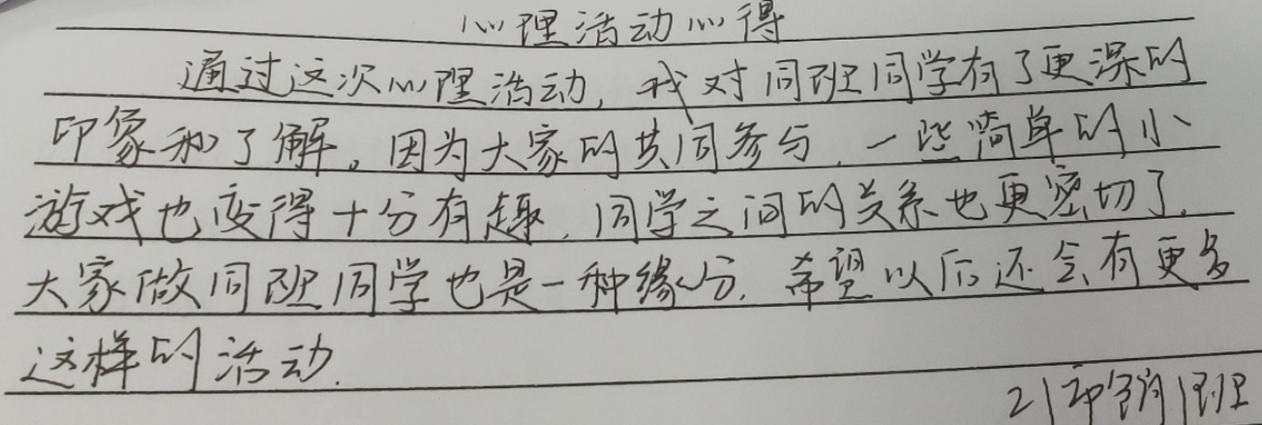 心理活动心得
通过这次心理活动，我对同班同学有了更深的
印象和了解。因为大家的共同参与，一些简单的小
游戏也变得十分有趣，同学之间的关系也更密切了，
大家做同班同学也是一种缘分，希望以后还会有更多
这样的活动.
21 1班